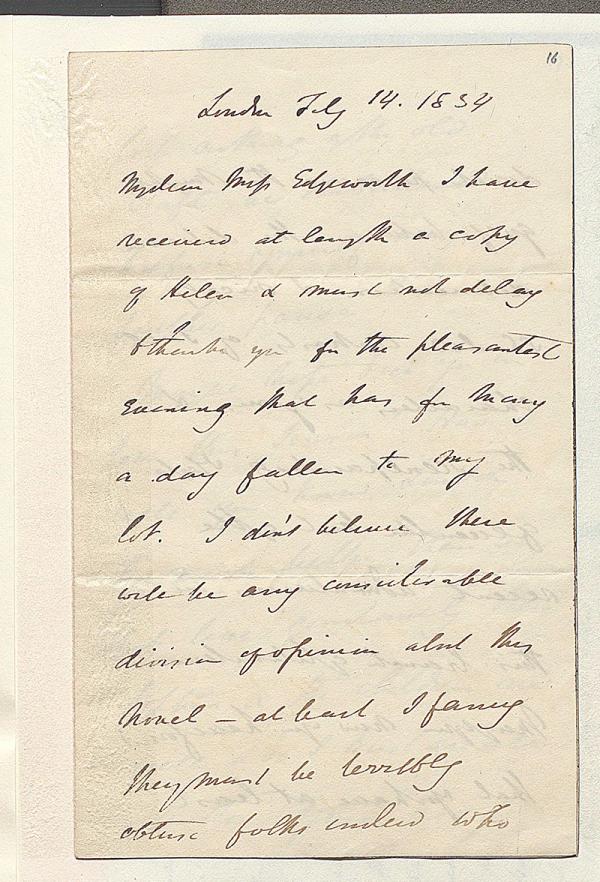 16
London Feby 14. 1834
My dear Miss Edgeworth I have
received at length a copy
of Helen & must not delay
to thank you for the pleasantest
evening that has for many
a day fallen to my
lot. I don't believe there
will be any considerable
division of opinion about this
novel – at least I fancy
they must be terribly
obtuse folks indeed who